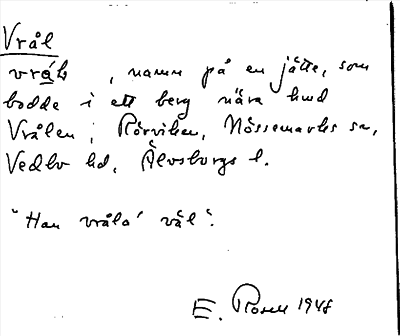 Vrål
vrål, namn på en jätte, som
bodde i ett berg nära invid
Vrålen i Rörviken, Nössemarks sn,
Vedbo hd, Älvsborgs l.
"Han vråla' väl".
E. Rosell 1948